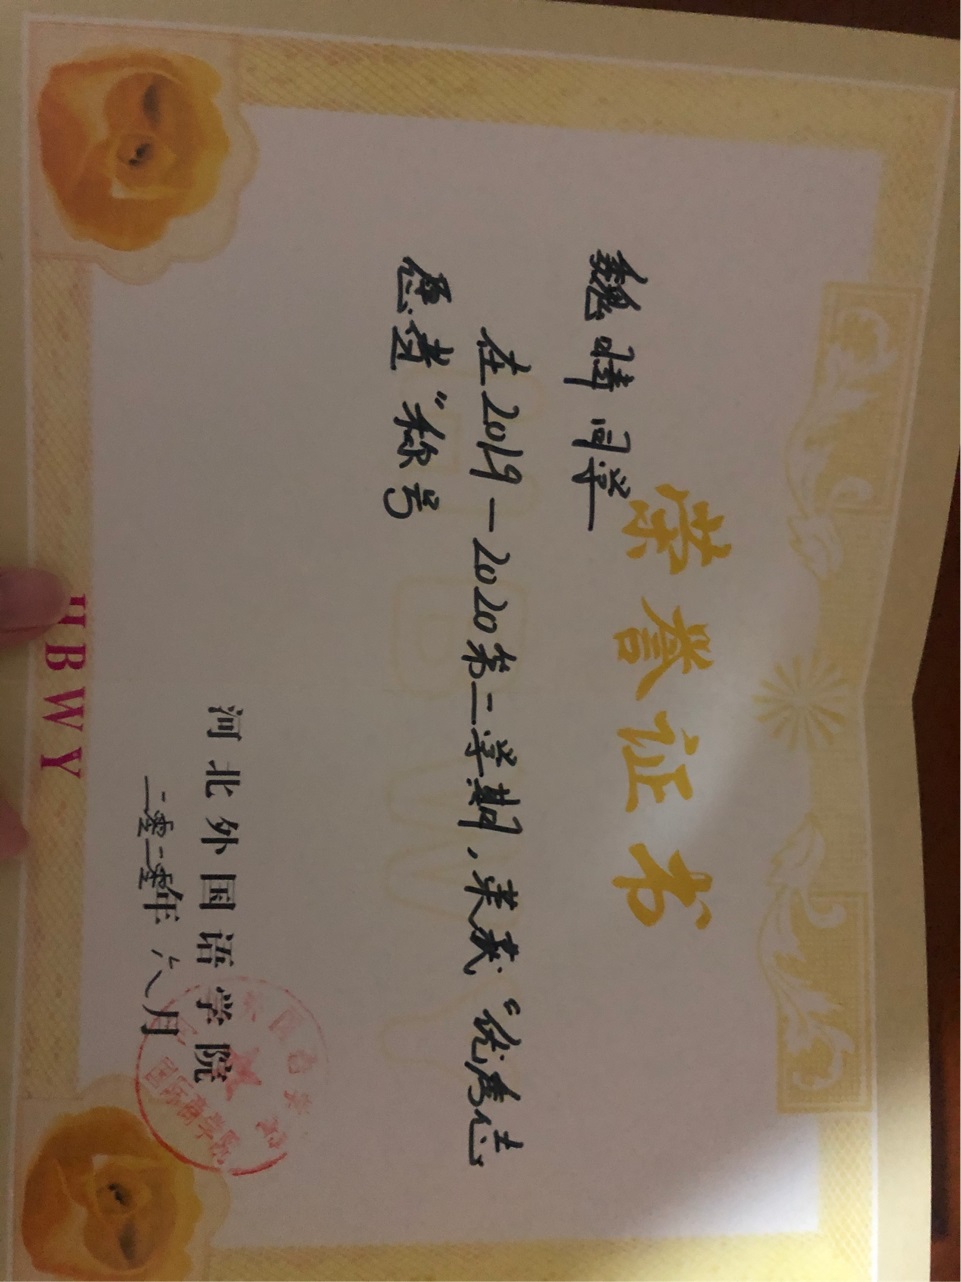 荣誉证书
魏晴同学
在2019-2020第二学期,荣获“优秀志
愿者”称号
河北外国语学院
二零二零年六月
国际商学院
HBWY